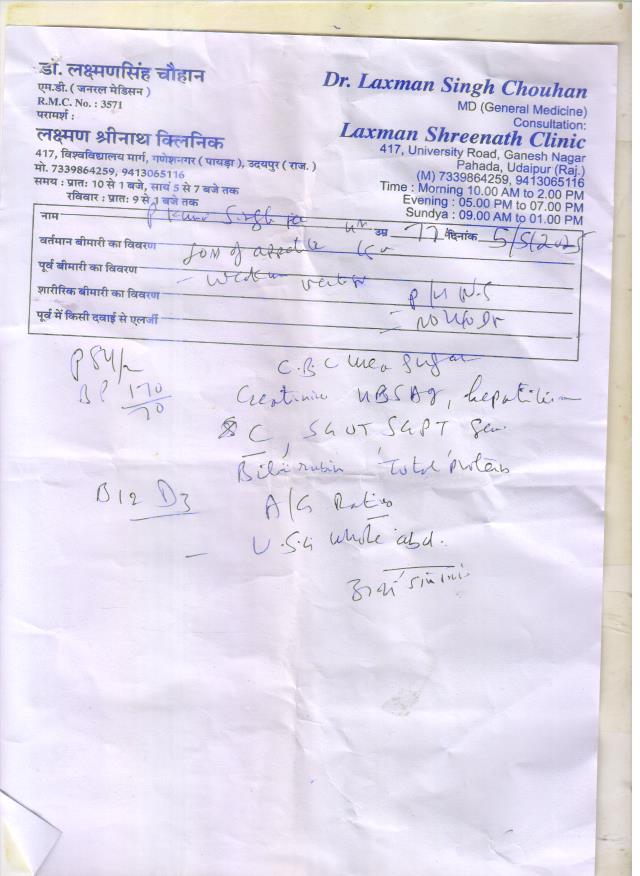 डॉ. लक्ष्मणसिंह चौहान
एम.डी. ( जनरल मेडिसन )
R.M.C. No. : 3571
परामर्श :
लक्ष्मण श्रीनाथ क्लिनिक
417, विश्वविद्यालय मार्ग, गणेशनगर ( पायड़ा ), उदयपुर ( राज. )
मो. 7339864259, 9413065116
समय : प्रातः 10 से 1 बजे, सायं 5 से 7 बजे तक
रविवार : प्रातः 9 से 1 बजे तक
Dr. Laxman Singh Chouhan
MD (General Medicine)
Consultation:
Laxman Shreenath Clinic
417, University Road, Ganesh Nagar
Pahada, Udaipur (Raj.)
(M) 7339864259, 9413065116
Time : Morning 10.00 AM to 2.00 PM
Evening : 05.00 PM to 07.00 PM
Sundya : 09.00 AM to 01.00 PM
नाम Singh उम्र 77 दिनांक 5/5/2025
वर्तमान बीमारी का विवरण
पूर्व बीमारी का विवरण
शारीरिक बीमारी का विवरण
पूर्व में किसी दवाई से एलर्जी
P 84/m
BP 170/70
C.B.C Urea Sugar
Creatinine HBSAg, hepatitis
C, SGOT SGPT
Bilirubin Total Protein
B12 D3
A/G Ratio
U.S.G whole abd.